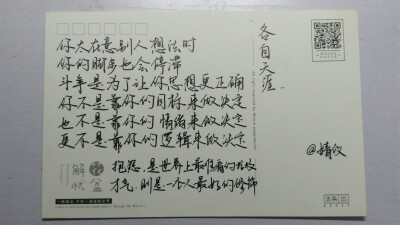 你太在意别人想法时
你的脚步也会停滞
斗争是为了让你思想更正确
你不是靠你们的目标来做决定
也不是靠你们的情绪来做决定
更不是靠你们的逻辑来做决定
抱怨是世界上最
才气则是一个人最好的修饰
各自天涯..
@婧仪
解忧